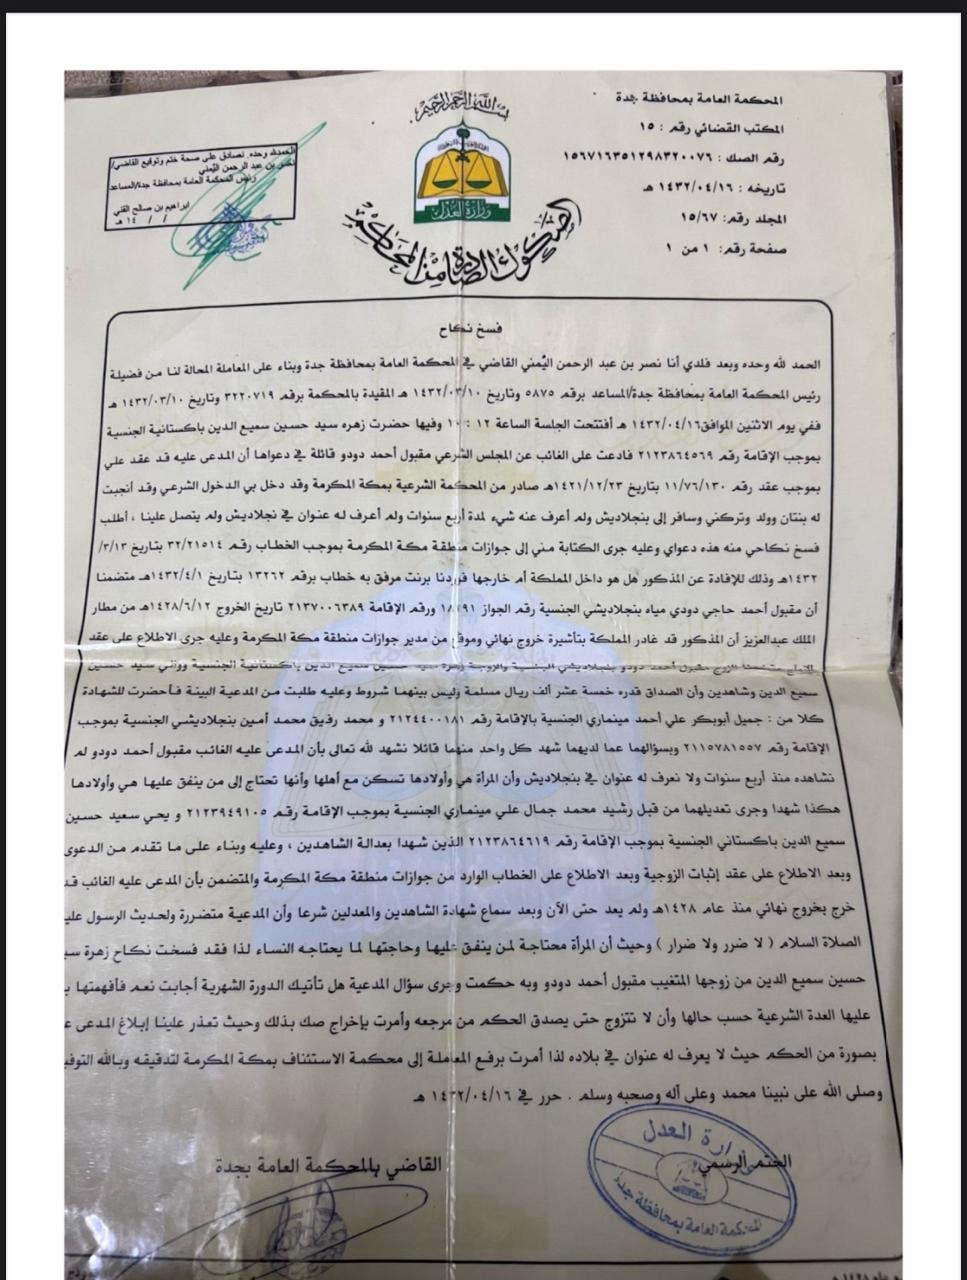 بسم الله الرحمن الرحيم
المحكمة العامة بمحافظة جدة
المكتب القضائي رقم : ١٥
رقم الصك : ١٥٦٧١٦٣٥١٢٩٨٣٢٠٠٧٦
تاريخه : ١٤٣٢/٠٤/١٦ هـ
المجلد رقم: ١٥/٦٧
صفحة رقم: ١ من ١
الحمدلله وحده. نصادق على صحة ختم وتوقيع القاضي/
نصر بن عبد الرحمن اليُمني
رئيس المحكمة العامة بمحافظة جدة/المساعد
ابراهيم بن صالح القني
/ / ١٤ هـ
وزارة العدل
الصكوك الصادرة من المحاكم
فسخ نكاح
الحمد لله وحده وبعد فلدي أنا نصر بن عبد الرحمن اليُمني القاضي في المحكمة العامة بمحافظة جدة وبناء على المعاملة المحالة لنا من فضيلة
رئيس المحكمة العامة بمحافظة جدة/المساعد برقم ٥٨٧٥ وتاريخ ١٤٣٢/٠٣/١٠ هـ المقيدة بالمحكمة برقم ٣٢٢٠٧١٩ وتاريخ ١٤٣٢/٠٣/١٠ هـ
ففي يوم الاثنين الموافق١٤٣٢/٠٤/١٦ هـ أفتتحت الجلسة الساعة ١٢ : ١٠ وفيها حضرت زهره سيد حسين سميع الدين باكستانية الجنسية
بموجب الإقامة رقم ٢١٢٣٨٦٤٥٦٩ فادعت على الغائب عن المجلس الشرعي مقبول أحمد دودو قائلة في دعواها أن المدعى عليه قد عقد علي
بموجب عقد رقم ١١/٧٦/١٣٠ بتاريخ ١٤٢١/١٢/٢٣هـ صادر من المحكمة الشرعية بمكة المكرمة وقد دخل بي الدخول الشرعي وقد أنجبت
له بنتان وولد وتركني وسافر إلى بنجلاديش ولم أعرف عنه شيء لمدة أربع سنوات ولم أعرف له عنوان في نجلاديش ولم يتصل علينا ، أطلب
فسخ نكاحي منه هذه دعواي وعليه جرى الكتابة مني إلى جوازات منطقة مكة المكرمة بموجب الخطاب رقم ٣٢/٢١٥١٤ بتاريخ ٣/١٣/
١٤٣٢هـ وذلك للإفادة عن المذكور هل هو داخل المملكة أم خارجها فوردنا برنت مرفق به خطاب برقم ١٣٢٦٢ بتاريخ ١٤٣٢/٤/١هـ متضمنا
أن مقبول أحمد حاجي دودي مياه بنجلاديشي الجنسية رقم الجواز ورقم الإقامة ٢١٣٧٠٠٦٣٨٩ تاريخ الخروج ١٤٢٨/٦/١٢هـ من مطار
الملك عبدالعزيز أن المذكور قد غادر المملكة بتأشيرة خروج نهائي وموقع من مدير جوازات منطقة مكة المكرمة وعليه جرى الاطلاع على عقد
الزوج مقبول أحمد دودو بنجلاديشي الجنسية والزوجة زهرة سيد حسين سميع الدين باكستانية الجنسية وولي سيد حسين
سميع الدين وشاهدين وأن الصداق قدره خمسة عشر ألف ريال مسلمة وليس بينهما شروط وعليه طلبت من المدعية البينة فأحضرت للشهادة
كلا من : جميل أبوبكر علي أحمد مينماري الجنسية بالإقامة رقم ٢١٢٤٤٠٠١٨١ و محمد رفيق محمد أمين بنجلاديشي الجنسية بموجب
الإقامة رقم ٢١١٥٧٨١٥٥٧ وبسؤالهما عما لديهما شهد كل واحد منهما قائلا نشهد لله تعالى بأن المدعى عليه الغائب مقبول أحمد دودو لم
نشاهده منذ أربع سنوات ولا نعرف له عنوان في بنجلاديش وأن المرأة هي وأولادها تسكن مع أهلها وأنها تحتاج إلى من ينفق عليها هي وأولادها
هكذا شهدا وجرى تعديلهما من قبل رشيد محمد جمال علي مينماري الجنسية بموجب الإقامة رقم ٢١٢٣٩٤٩١٠٥ و يحي سعيد حسين
سميع الدين باكستاني الجنسية بموجب الإقامة رقم ٢١٢٣٨٦٤٦١٩ الذين شهدا بعدالة الشاهدين ، وعليه وبناء على ما تقدم من الدعوى
وبعد الاطلاع على عقد إثبات الزوجية وبعد الاطلاع على الخطاب الوارد من جوازات منطقة مكة المكرمة والمتضمن بأن المدعى عليه الغائب قد
خرج بخروج نهائي منذ عام ١٤٢٨هـ ولم يعد حتى الآن وبعد سماع شهادة الشاهدين والمعدلين شرعا وأن المدعية متضررة ولحديث الرسول
الصلاة السلام ( لا ضرر ولا ضرار ) وحيث أن المرأة محتاجة لمن ينفق عليها وحاجتها لما يحتاجه النساء لذا فقد فسخت نكاح زهرة
حسين سميع الدين من زوجها المتغيب مقبول أحمد دودو وبه حكمت وجرى سؤال المدعية هل تأتيك الدورة الشهرية أجابت نعم فأفهمتها
عليها العدة الشرعية حسب حالها وأن لا تتزوج حتى يصدق الحكم من مرجعه وأمرت بإخراج صك بذلك وحيث تعذر علينا إبلاغ المدعى
بصورة من الحكم حيث لا يعرف له عنوان في بلاده لذا أمرت برفع المعاملة إلى محكمة الاستئناف بمكة المكرمة لتدقيقه وبالله
وصلى الله على نبينا محمد وعلى آله وصحبه وسلم . حرر في ١٤٣٢/٠٤/١٦ هـ
الختم الرسمي
القاضي بالمحكمة العامة بجدة
وزارة العدل
المحكمة العامة بمحافظة جدة